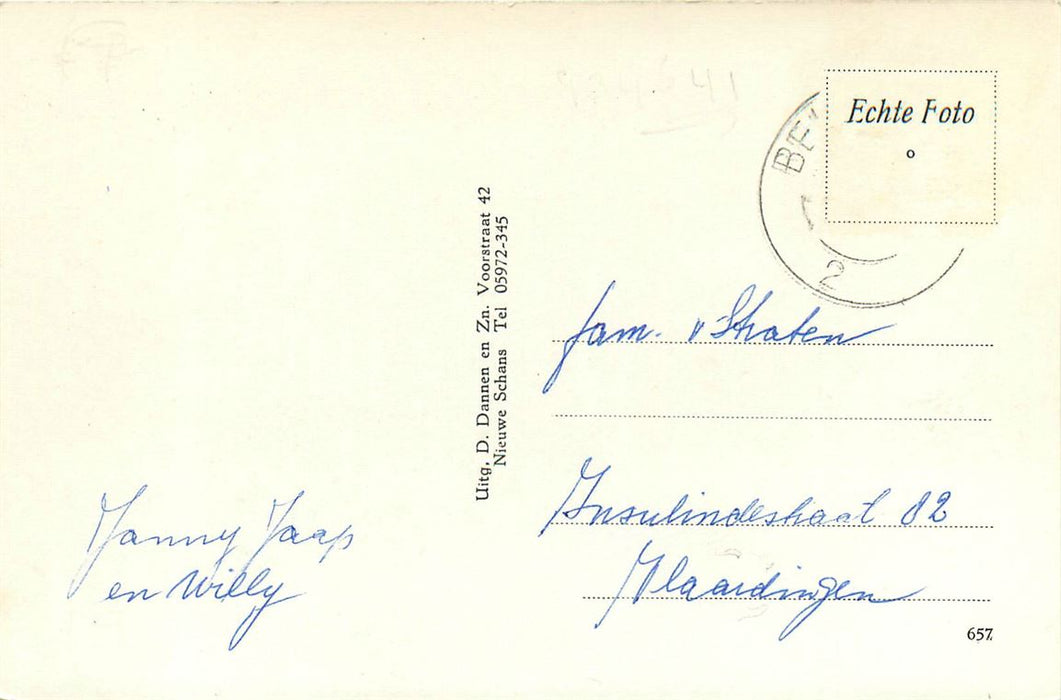 Echte Foto
BE
2
Uitg, D. Dannen en Zn. Voorstraat 42
Nieuwe Schans Tel 05972-345
fam. v Straten
Insulindestraat 82
Vlaardingen
Janny Jaap
en Willy
657